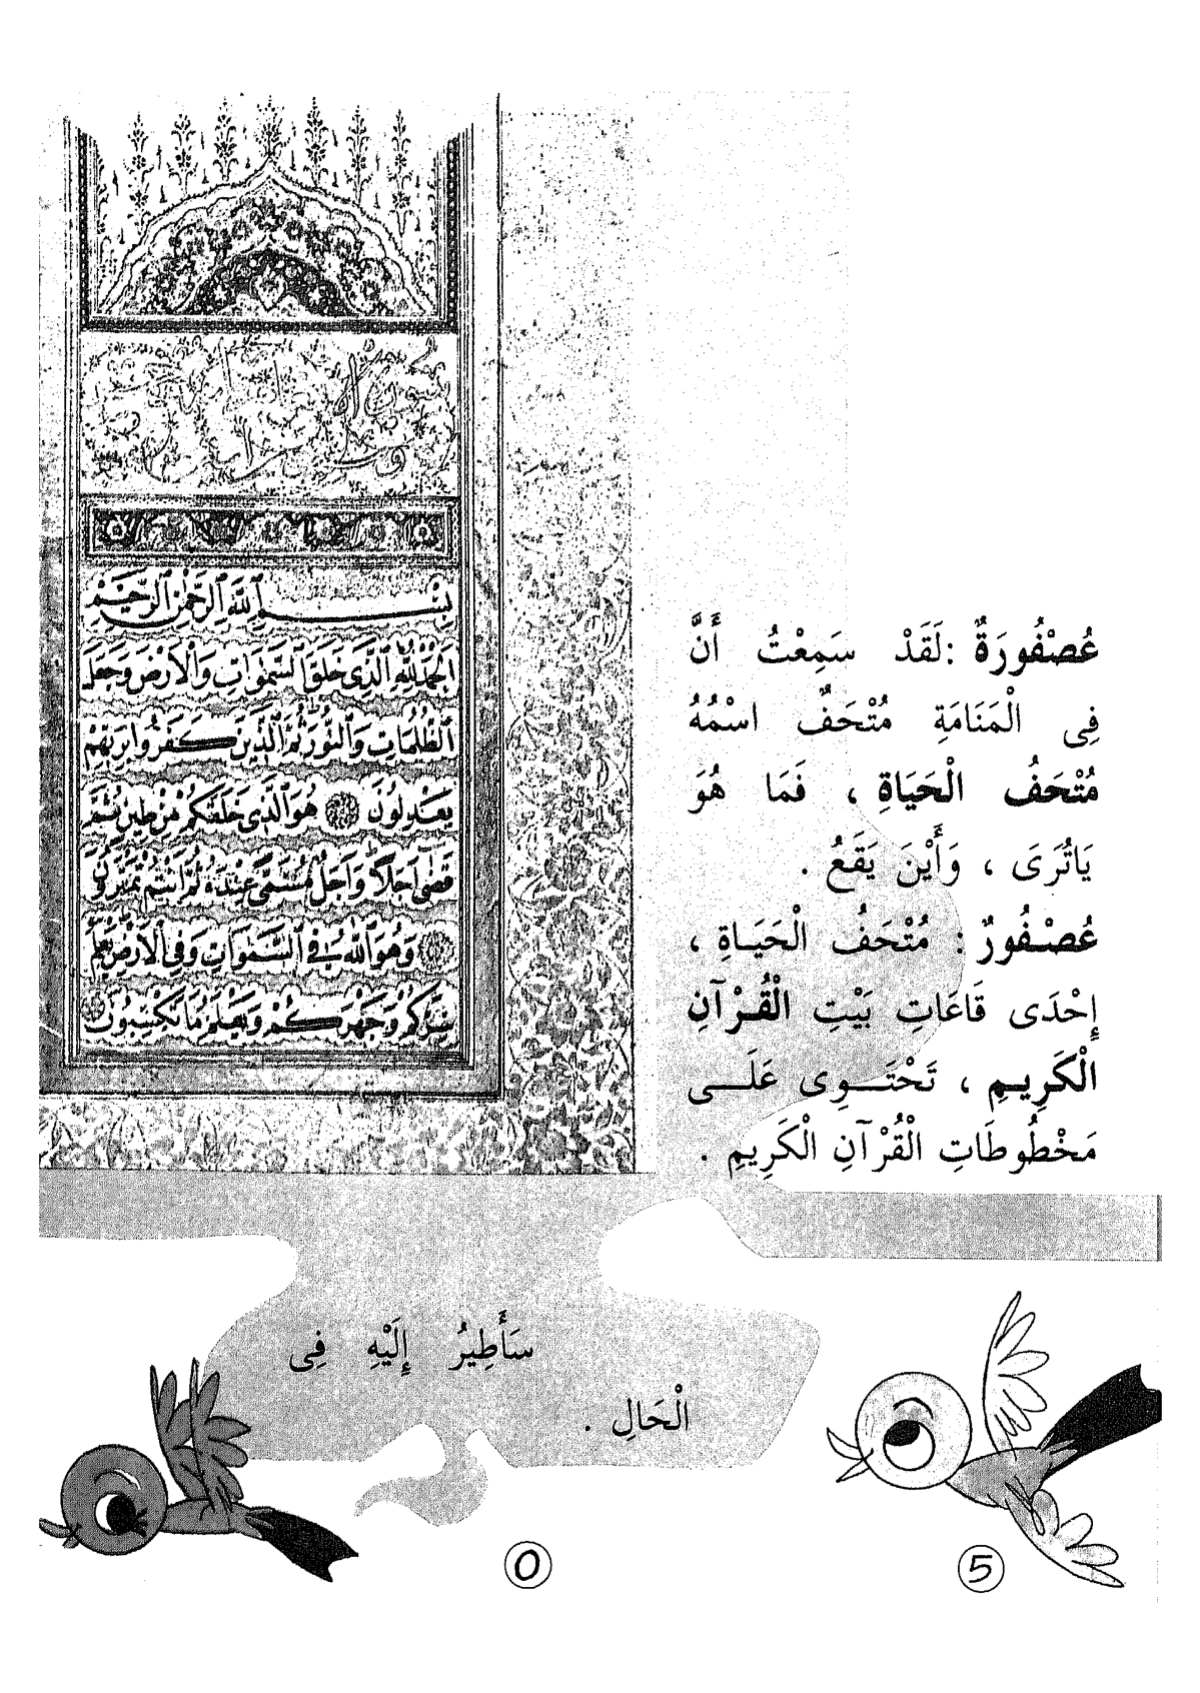 بِسْمِ ٱللَّهِ ٱلرَّحْمٰنِ ٱلرَّحِيمِ
اَلْحَمْدُ لِلّٰهِ الَّذِى خَلَقَ السَّمٰوَاتِ وَالْاَرْضَ وَجَعَلَ
الظُّلُمَاتِ وَالنُّورَ ثُمَّ الَّذِينَ كَفَرُوا بِرَبِّهِمْ
يَعْدِلُونَ هُوَ الَّذِى خَلَقَكُمْ مِنْ طِينٍ ثُمَّ
قَضٰى اَجَلًا وَاَجَلٌ مُسَمًّى عِنْدَهُ ثُمَّ اَنْتُمْ تَمْتَرُونَ
وَهُوَ اللّٰهُ فِى السَّمٰوَاتِ وَفِى الْاَرْضِ يَعْلَمُ
سِرَّكُمْ وَجَهْرَكُمْ وَيَعْلَمُ مَا تَكْسِبُونَ
عُصْفُورَةٌ :لَقَدْ سَمِعْتُ أَنَّ
فِى الْمَنَامَةِ مُتْحَفٌ اسْمُهُ
مُتْحَفُ الْحَيَاةِ ، فَمَا هُوَ
يَاتُرَى ، وَأَيْنَ يَقَعُ .
عُصْفُورٌ : مُتْحَفُ الْحَيَاةِ ،
إِحْدَى قَاعَاتِ بَيْتِ الْقُرْآنِ
الْكَرِيمِ ، تَحْتَوِى عَلَى
مَخْطُوطَاتِ الْقُرْآنِ الْكَرِيمِ .
سَأَطِيرُ إِلَيْهِ فِى
الْحَالِ .
٥
5